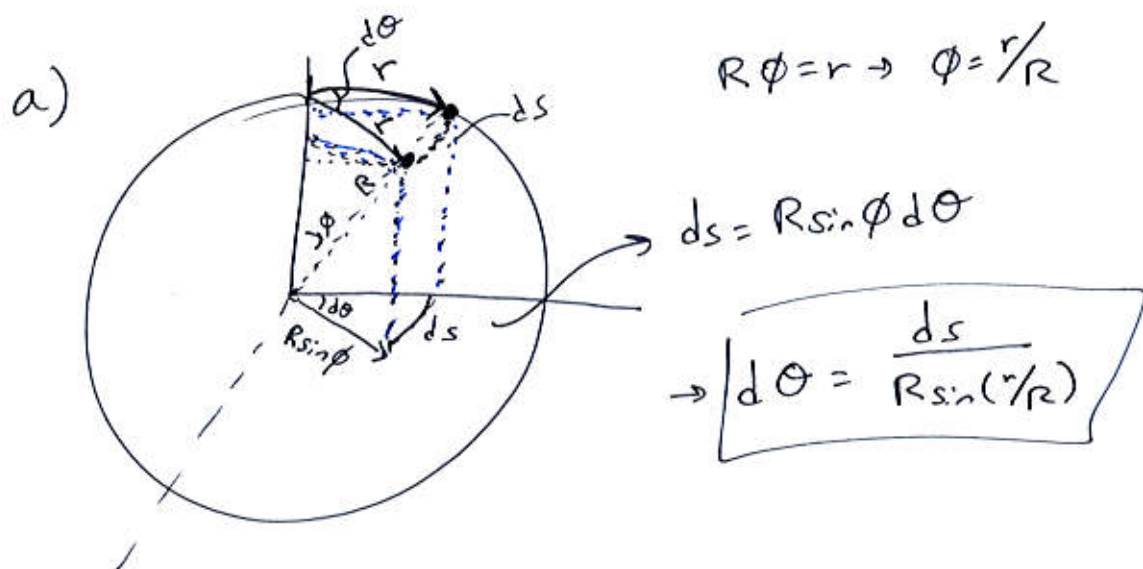 a)
dθ
r
r
ds
R
ϕ
dθ
R sinϕ
ds
Rϕ = r → ϕ = r/R
ds = R sinϕ dθ
→ dθ = ds / R sin(r/R)